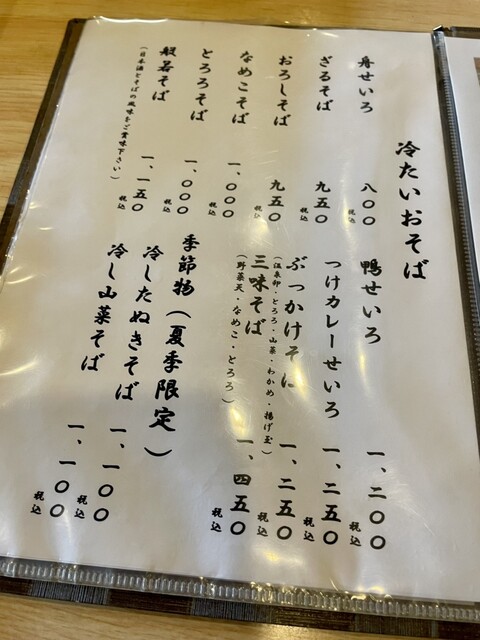 冷たいおそば
舟せいろ 八〇〇 税込
ざるそば 九五〇 税込
おろしそば 九五〇 税込
なめこそば 一、〇〇〇 税込
とろろそば 一、〇〇〇 税込
般若そば 一、一五〇 税込
(日本酒とそばの風味をご賞味下さい)
鴨せいろ 一、二〇〇 税込
つけカレーせいろ 一、二五〇 税込
ぶっかけそば 一、二五〇 税込
(温泉卵・とろろ・山菜・わかめ・揚げ玉)
三味そば 一、四五〇 税込
(野菜天・なめこ・とろろ)
季節物(夏季限定)
冷したぬきそば 一、一〇〇 税込
冷し山菜そば 一、一〇〇 税込